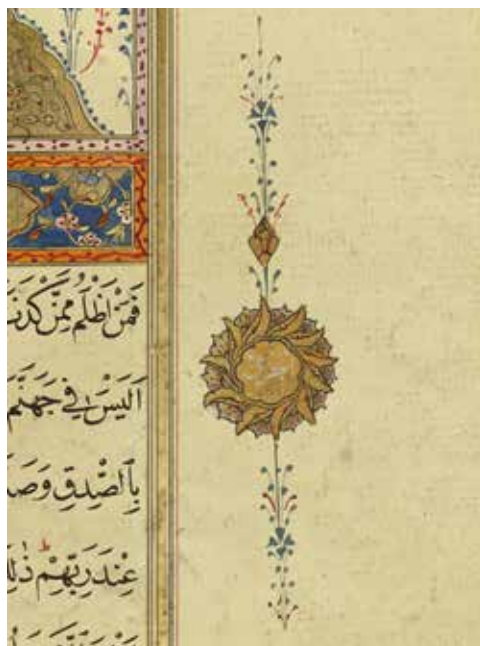 فَمَنْ اَظْلَمُ مِمَّنْ كَذَبَ
اَلَيْسَ فِي جَهَنَّمَ
بِالصِّدْقِ وَصَدَّ
عِنْدَ رَبِّهِمْ ذٰلِكَ